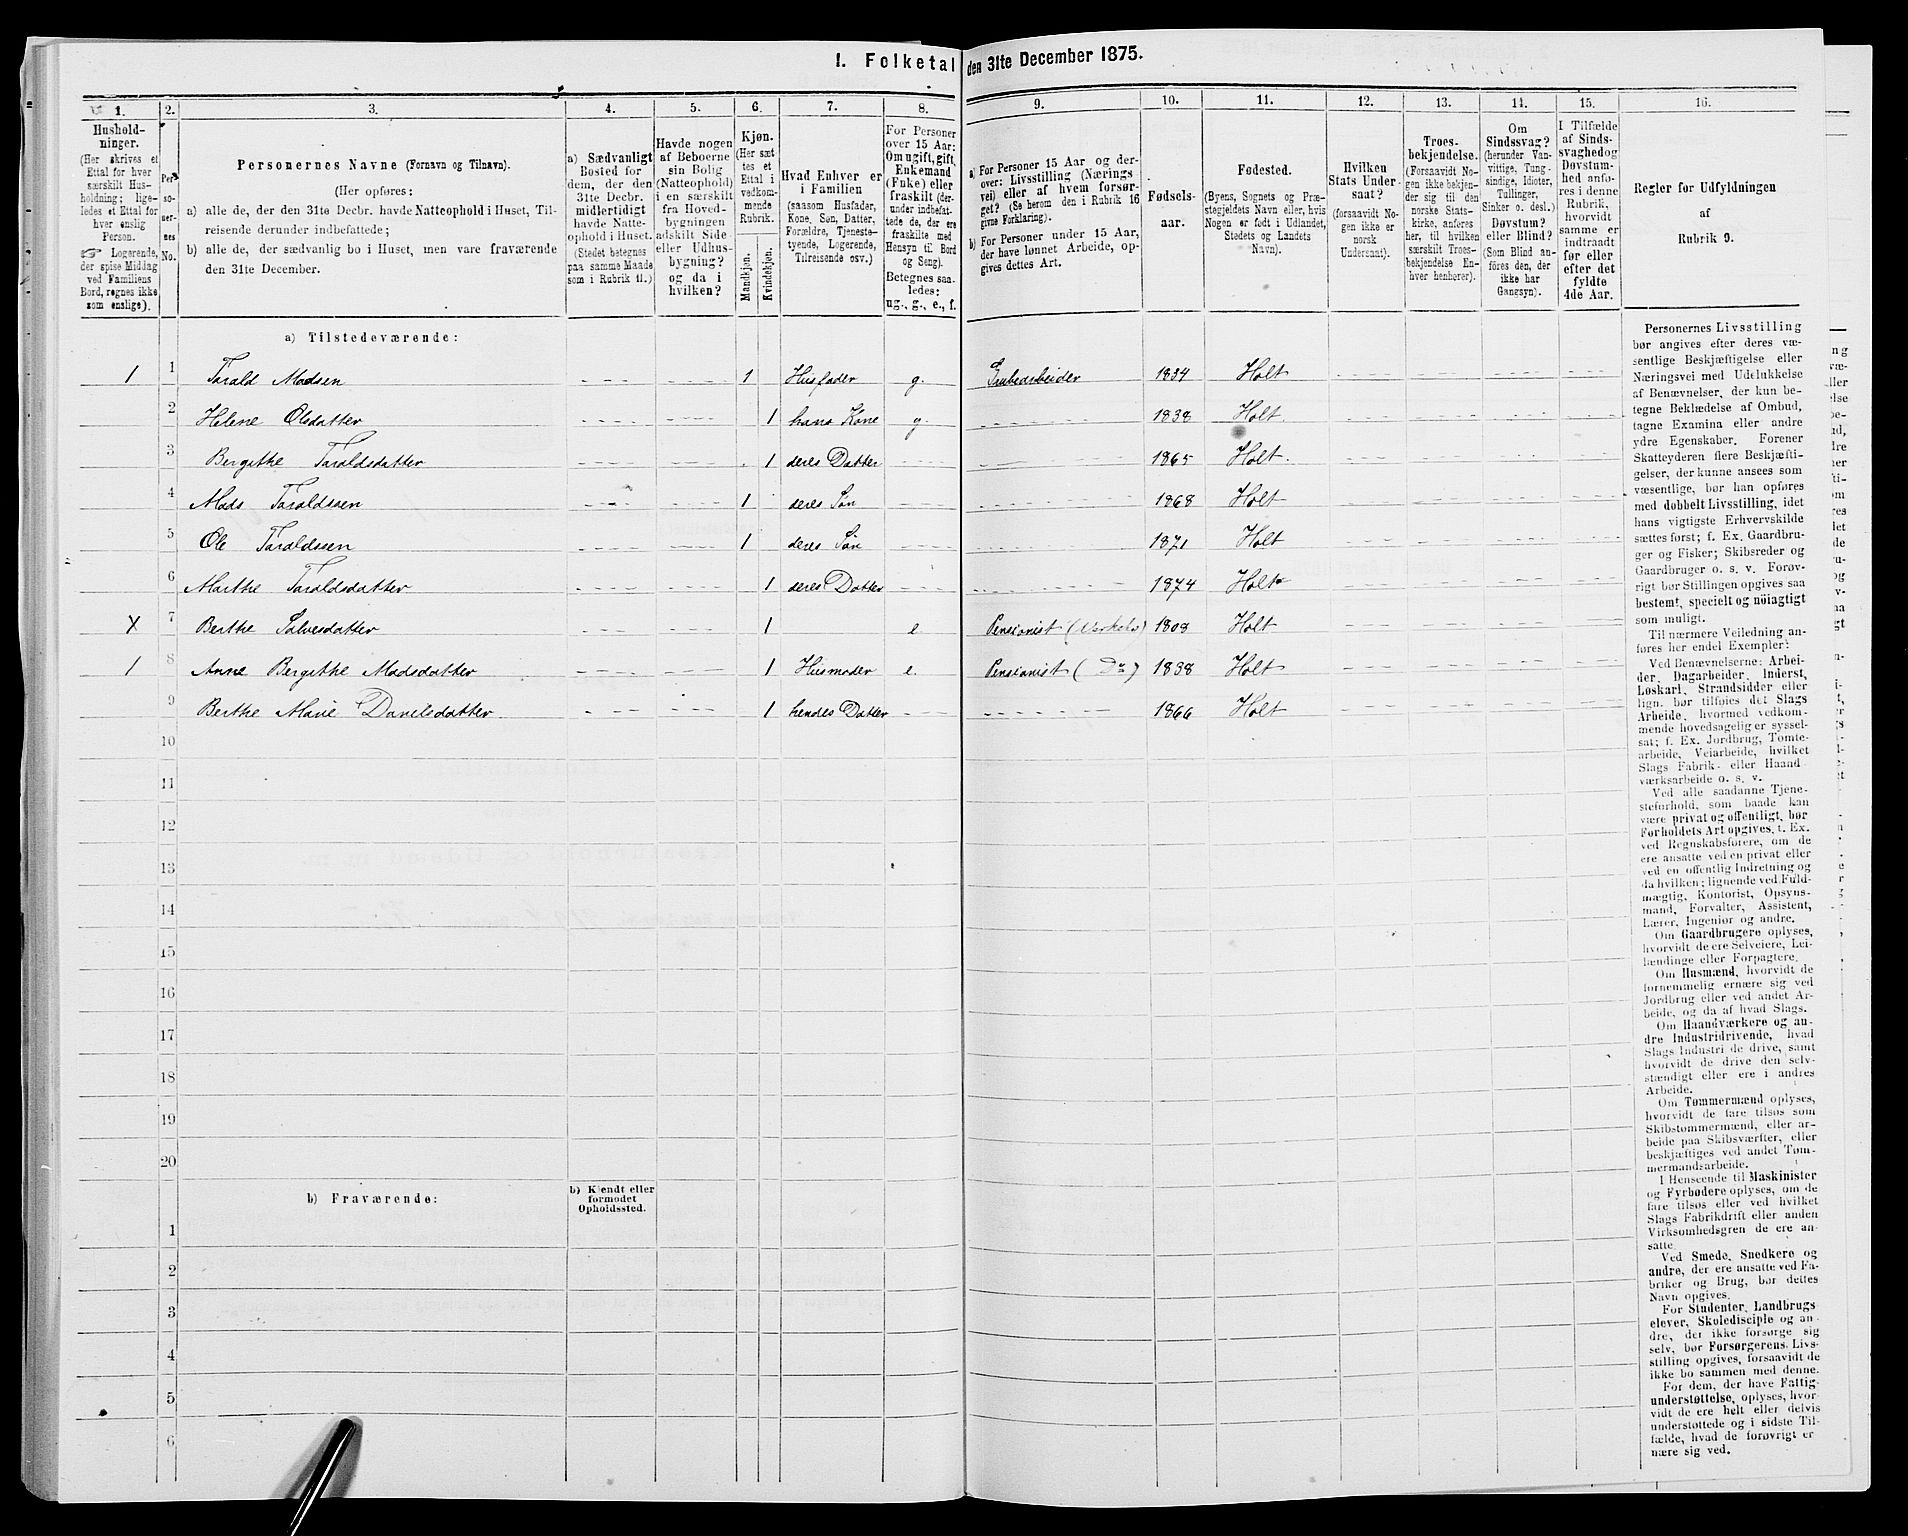 I. Folketal den 31te December 1875.
1. 2. 3. 4. 5. 6. 7. 8. 9. 10. 11. 12. 13. 14. 15. 16.
Hushold-
ninger.
(Her skrives et
Ettal for hver
særskilt Hus-
holdning; lige-
ledes et Ettal for
hver enslig
Person.
☞ Logerende,
der spise Middag
ved Familiens
Bord, regnes ikke
som enslige).
Per-
so-
ner-
nes
No.
Personernes Navne (Fornavn og Tilnavn).
(Her opføres:
a) alle de, der den 31te Decbr. havde Natteophold i Huset, Til-
reisende derunder indbefattede;
b) alle de, der sædvanlig bo i Huset, men vare fraværende
den 31te December.
a) Sædvanligt
Bosted for
dem, der den
31te Decbr.
midlertidigt
havde Natte-
ophold i Huset.
(Stedet betegnes
paa samme Maade
som i Rubrik 11.)
Havde nogen
af Beboerne
sin Bolig
(Natteophold)
i en særskilt
fra Hoved-
bygningen
adskilt Side
eller Udhus-
bygning?
og da i
hvilken?
Kjøn.
(Her sæt-
tes et
Ettal i
vedkom-
mende
Rubrik.
Mandkjøn.
Kvindekjøn.
Hvad Enhver er
i Familien
(saasom Husfader,
Kone, Søn, Datter,
Forældre, Tjeneste-
tyende, Logerende,
Tilreisende osv.)
For Personer
over 15 Aar:
Om ugift, gift,
Enkemand
(Enke) eller
fraskilt (der-
under indbefat-
tede de, der ere
fraskilte med
Hensyn til Bord
og Seng).
Betegnes saa-
ledes:
ug., g., e., f.
a) For Personer 15 Aar og der-
over: Livsstilling (Nærings-
vei) eller af hvem forsør-
get? (Se herom den i Rubrik 16
givne Forklaring).
b) For Personer under 15 Aar,
der have lønnet Arbeide, op-
gives dettes Art.
Fødsels-
aar.
Fødested.
(Byens, Sognets og Præ-
stegjeldets Navn eller, hvis
Nogen er født i Udlandet,
Stedets og Landets
Navn).
Hvilken
Stats Under-
saat?
(forsaavidt No-
gen ikke er
norsk
Undersaat).
Troes-
bekjendelse.
(Forsaavidt No-
gen ikke bekjen-
der sig til den
norske Stats-
kirke, anføres
her, til hvilken
særskilt Troes-
bekjendelse En-
hver henhører).
Om
Sindssvag?
(herunder Van-
vittige, Tung-
sindige, Idioter,
Tullinger,
Sinker o. desl.)
Døvstum?
eller Blind?
(Som Blind an-
føres den, der
ikke har
Gangsyn).
I Tilfælde
af Sinds-
svaghed og
Døvstum-
hed anfø-
res i denne
Rubrik,
hvorvidt
samme er
indtraadt
før eller
efter det
fyldte
4de Aar.
Regler for Udfyldningen
af
Rubrik 9.
a) Tilstedeværende:
1 1 Tarald Madsen 1 Husfader g. Grubearbeider 1834 Holt
2 Helene Olsdatter 1 hans Kone g. 1838 Holt.
3 Bergithe Taraldsdatter 1 deres Datter 1865 Holt.
4 Mads Taraldssen 1 deres Søn 1868 Holt
5 Ole Taraldssen 1 deres Søn 1871 Holt
6 Marthe Taraldsdatter 1 deres Datter 1874 Holt
X 7 Berthe Salvesdatter 1 e Pensionist (Verkets) 1808 Holt
1 8 Anne Bergithe Madsdatter 1 Husmoder e. Pensionist (Do) 1838 Holt
9 Berthe Marie Danielsdatter 1 hendes Datter 1866 Holt
10
11
12
13
14
15
16
17
18
19
20
b) Fraværende:
b) Kjendt eller
formodet
Opholdssted.
1
2
3
4
5
6
Personernes Livsstilling
bør angives efter deres væ-
sentlige Beskjæftigelse eller
Næringsvei med Udelukkelse
af Benævnelser, der kun be-
tegne Beklædelse af Ombud,
tagne Examina eller andre
ydre Egenskaber. Forener
Skatteyderen flere Beskjæfti-
gelser, der kunne ansees som
væsentlige, bør han opføres
med dobbelt Livsstilling, idet
hans vigtigste Erhvervskilde
sættes først; f. Ex. Gaardbru-
ger og Fisker; Skibsreder og
Gaardbruger o. s. v. Forøv-
rigt bør Stillingen opgives saa
bestemt, specielt og nøiagtigt
som muligt.
Til nærmere Veiledning an-
føres her endel Exempler:
Ved Benævnelserne: Arbei-
der, Dagarbeider, Inderst,
Løskarl, Strandsidder eller
lign. bør tilføies det Slags
Arbeide, hvormed vedkom-
mende hovedsagelig er syssel-
sat; f. Ex. Jordbrug, Tomte-
arbeide, Veiarbeide, hvilket
Slags Fabrik- eller Haand-
værksarbeide o. s. v.
Ved alle saadanne Tjene-
steforhold, som baade kan
være privat og offentligt, bør
Forholdets Art opgives, t. Ex.
ved Regnskabsførere, om de
ere ansatte ved en privat eller
ved en offentlig Indretning og
da hvilken; lignende ved Fuld-
mægtig, Kontorist, Opsyns-
mand, Forvalter, Assistent,
Lærer, Ingeniør og andre.
Om Gaardbrugere oplyses,
hvorvidt de ere Selveiere, Lei-
lændinge eller Forpagtere.
Om Husmænd, hvorvidt de
fornemmelig ernære sig ved
Jordbrug eller ved andet Ar-
beide, og da af hvad Slags.
Om Haandværkere og an-
dre Industridrivende, hvad
Slags Industri de drive, samt
hvorvidt de drive den selv-
stændigt eller ere i andres
Arbeide.
Om Tømmermænd oplyses,
hvorvidt de fare tilsøs som
Skibstømmermænd, eller ar-
beide paa Skibsværfter, eller
beskjæftiges ved andet Tøm-
mermandsarbeide.
I Henseende til Maskinister
og Fyrbødere oplyses, om de
fare tilsøs eller ved hvilket
Slags Fabrikdrift eller anden
Virksomhedsgren de ere an-
satte.
Ved Smede, Snedkere og
andre, der ere ansatte ved Fa-
briker og Brug, bør dettes
Navn opgives.
For Studenter, Landbrugs-
elever, Skoledisciple og an-
dre, der ikke forsørge sig
selv, bør Forsørgerens Livs-
stilling opgives, forsaavidt de
ikke bo sammen med denne.
For dem, der have Fattig-
understøttelse, oplyses, hvor-
vidt de ere helt eller delvis
understøttede og i sidste Til-
fælde, hvad de forøvrigt er-
nære sig ved.